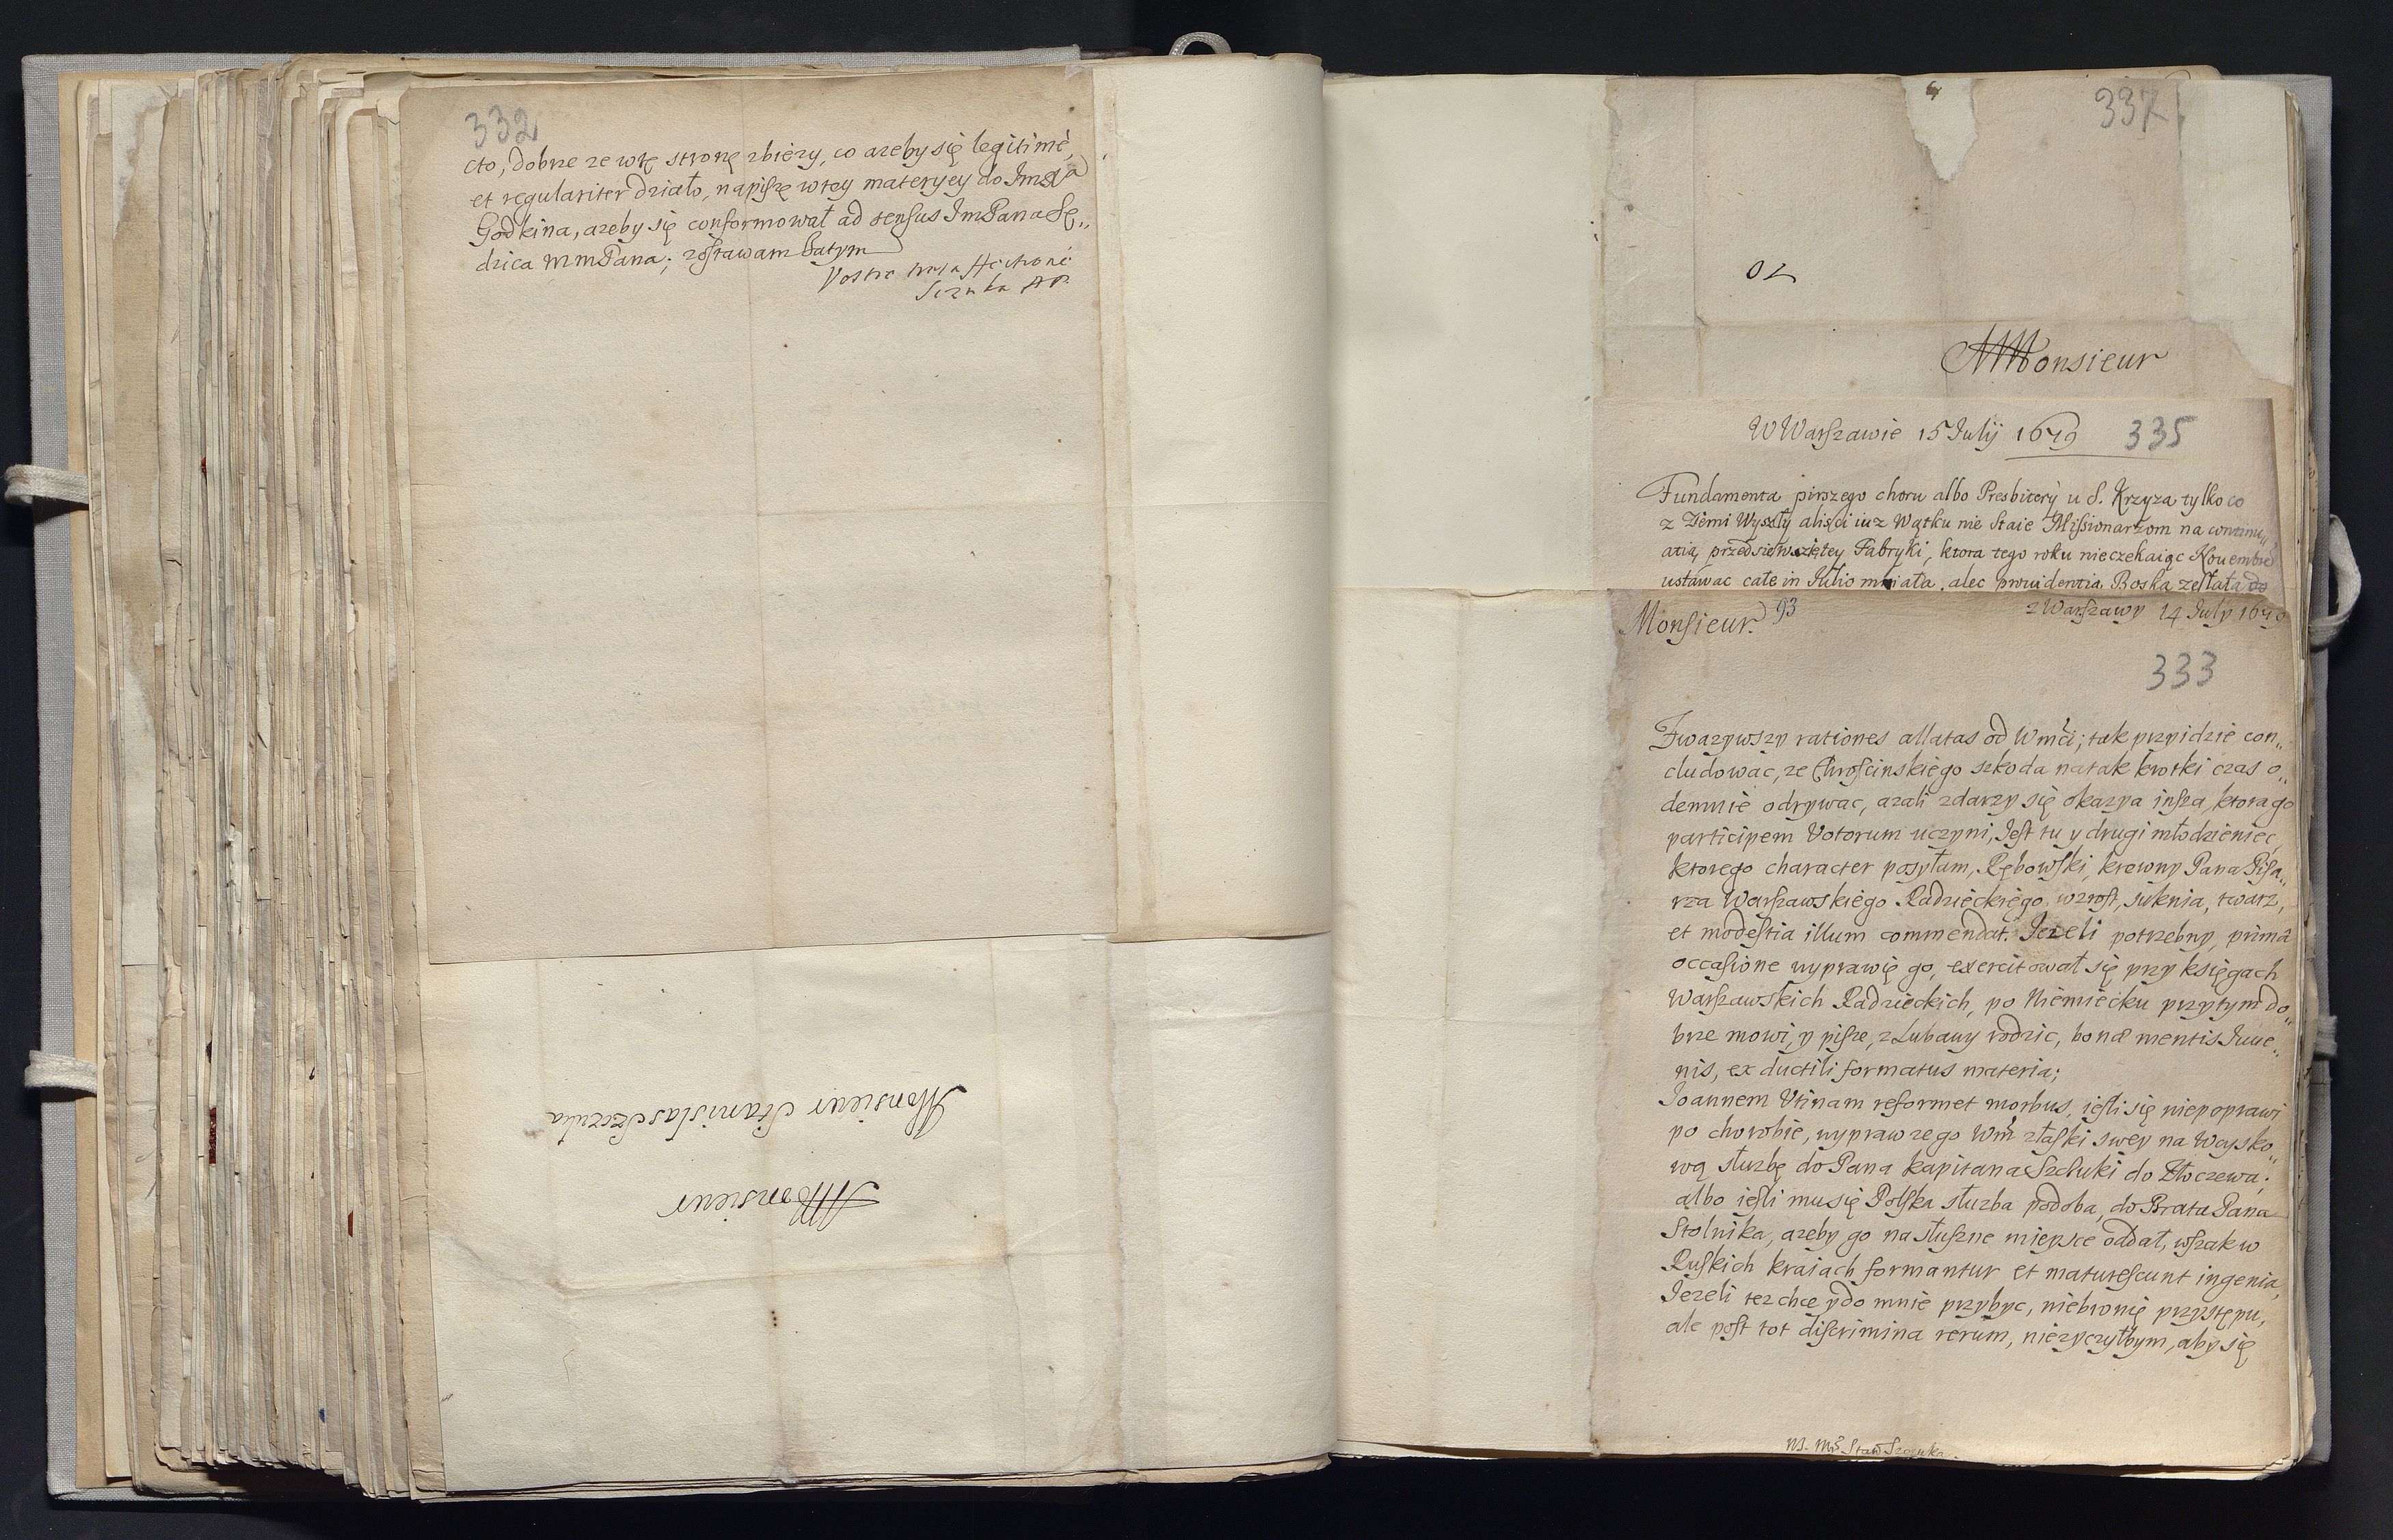 332
cto, dobrze ze wtę stronę zbieży, co azeby się legitimè,
et regulariter działo, napiszę wtey materyey do Jm
Godkina, azeby się conformował ad sensus JmPana Sę„
dzica MmPana; zostawam zatym
Vostre
Szczuka
Monsieur
Monsieur Stanislas Szczuka
337
Monsieur
W Warszawie 15 Julij 1679
335
Fundamenta pirszego choru albo Presbitery u S. Krzyza tylko co
z Ziemi Wyszły aliści iuz Wątku nie Staie Missionarzom na continu„
atią przedsiewziętey Fabryki, ktora tego roku nieczekaiąc Nouembra
ustawac cale in Julio miała, alec prouidentia Boska zesłała do
Monsieur 93
z Warszawy 14 July 1679
333
Zwazywszy rationes allatas od Wmci; tak przyidzie con„
cludowac, ze Chroscinskiego szkoda natak krotki czas o„
demnie odrywac, azali zdarzy się okazya insza, ktora go
participem Votorum uczyni, Jest tu y drugi młodzieniec,
ktorego character posyłam, Rębowski, krewny Pana Pisa„
rza Warszawskiego Radzieckiego, wzrost, suknia, twarz,
et modestia illum commendat. Jezeli potrzebny, primâ
occasione wyprawię go, exercitował się przy księgach
Warszawskich Radzieckich, po Niemiecku przytym do„
brze mowi, y pisze, z Lubawy rodzic, bonæ mentis Iuue„
nis, ex ductili formatus materia;
Joannem Vtinam reformet morbus, iesli się niepoprawi
po chorobie, wypraw zego Wm złaski swey na Woysko„
wą służbę do Pana kapitana Szczuki do Złoczewa;
albo iesli musię Polska słuzba podoba, do Brata Pana
Stolnika, azeby go na słuszne mieysce oddał, wszak w
Ruskich kraiach formantur et maturescunt ingenia,
Jezeli tez chce ydo mnie przybyc, niebronię przystępu,
ale post tot discrimina rerum, niezyczyłbym, aby się
M. Mr Stan Szczuka